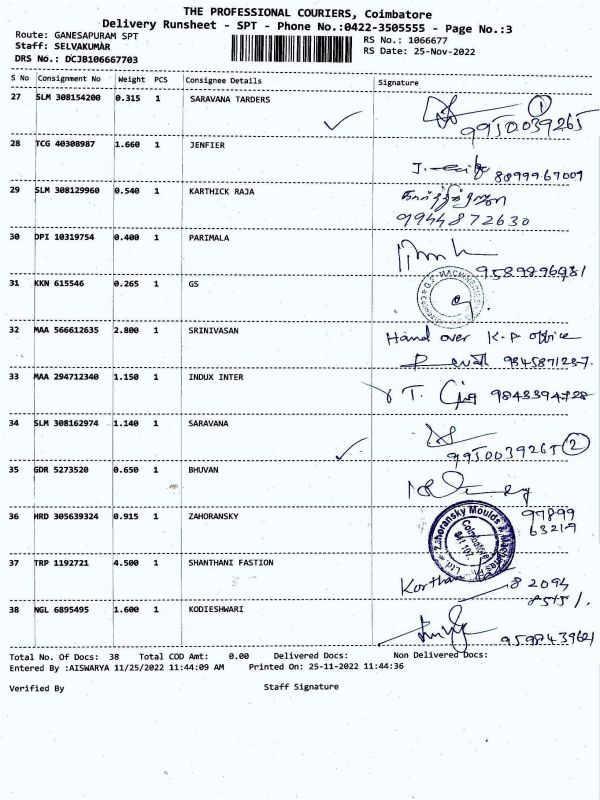 THE PROFESSIONAL COURIERS, Coimbatore
Delivery Runsheet - SPT - Phone No.:0422-3505555 - Page No.:3
Route: GANESAPURAM SPT
RS No.: 1066677
Staff: SELVAKUMAR
RS Date: 25-Nov-2022
DRS No.: DCJB106667703
S No Consignment No Weight PCS Consignee Details Signature
27 SLM 308154200 0.315 1 SARAVANA TARDERS 1
9950039265
28 TCG 40308987 1.660 1 JENFIER
J. 8099967009
29 SLM 308129960 0.540 1 KARTHICK RAJA
9944872630
30 DPI 10319754 0.400 1 PARIMALA
9589996981
31 KKN 615546 0.265 1 GS
32 MAA 566612635 2.800 1 SRINIVASAN Hand over K.P. office
9845871257.
33 MAA 294712340 1.150 1 INDUX INTER
T. 9843394728
34 SLM 308162974 1.140 1 SARAVANA
9950039265 2
35 GDR 5273520 0.650 1 BHUVAN
36 HRD 305639324 0.915 1 ZAHORANSKY 97899
63219
Zahoransky Moulds & Machines
Coimbatore
641 107.
37 TRP 1192721 4.500 1 SHANTHANI FASTION
8 2094
85151.
38 NGL 6895495 1.600 1 KODIESHWARI
9598439621
Total No. Of Docs: 38 Total COD Amt: 0.00 Delivered Docs: Non Delivered Docs:
Entered By :AISWARYA 11/25/2022 11:44:09 AM Printed On: 25-11-2022 11:44:36
Verified By Staff Signature